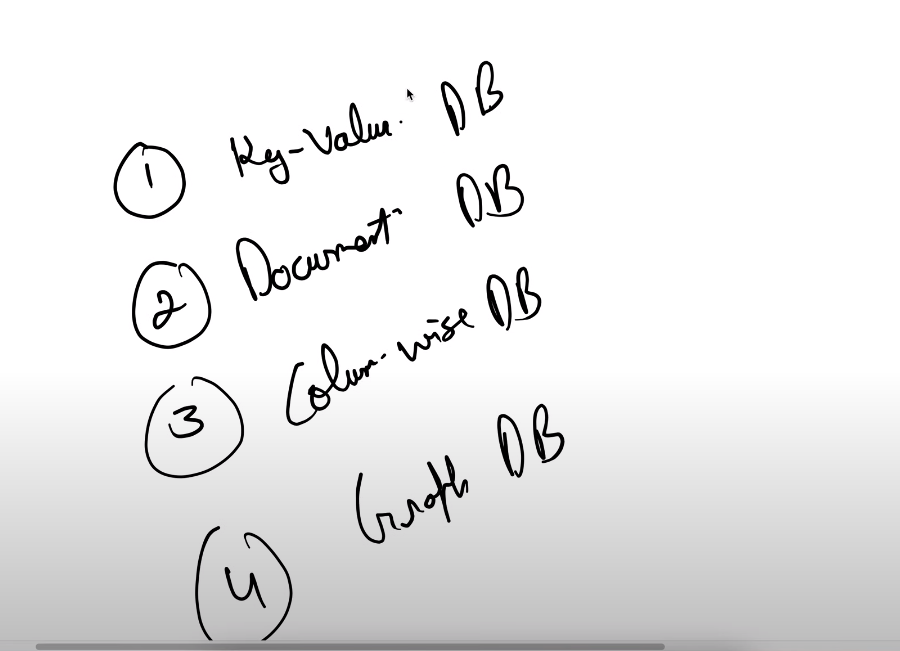 1 Key-Value DB
2 Document DB
3 Colum-wise DB
4 Graph DB